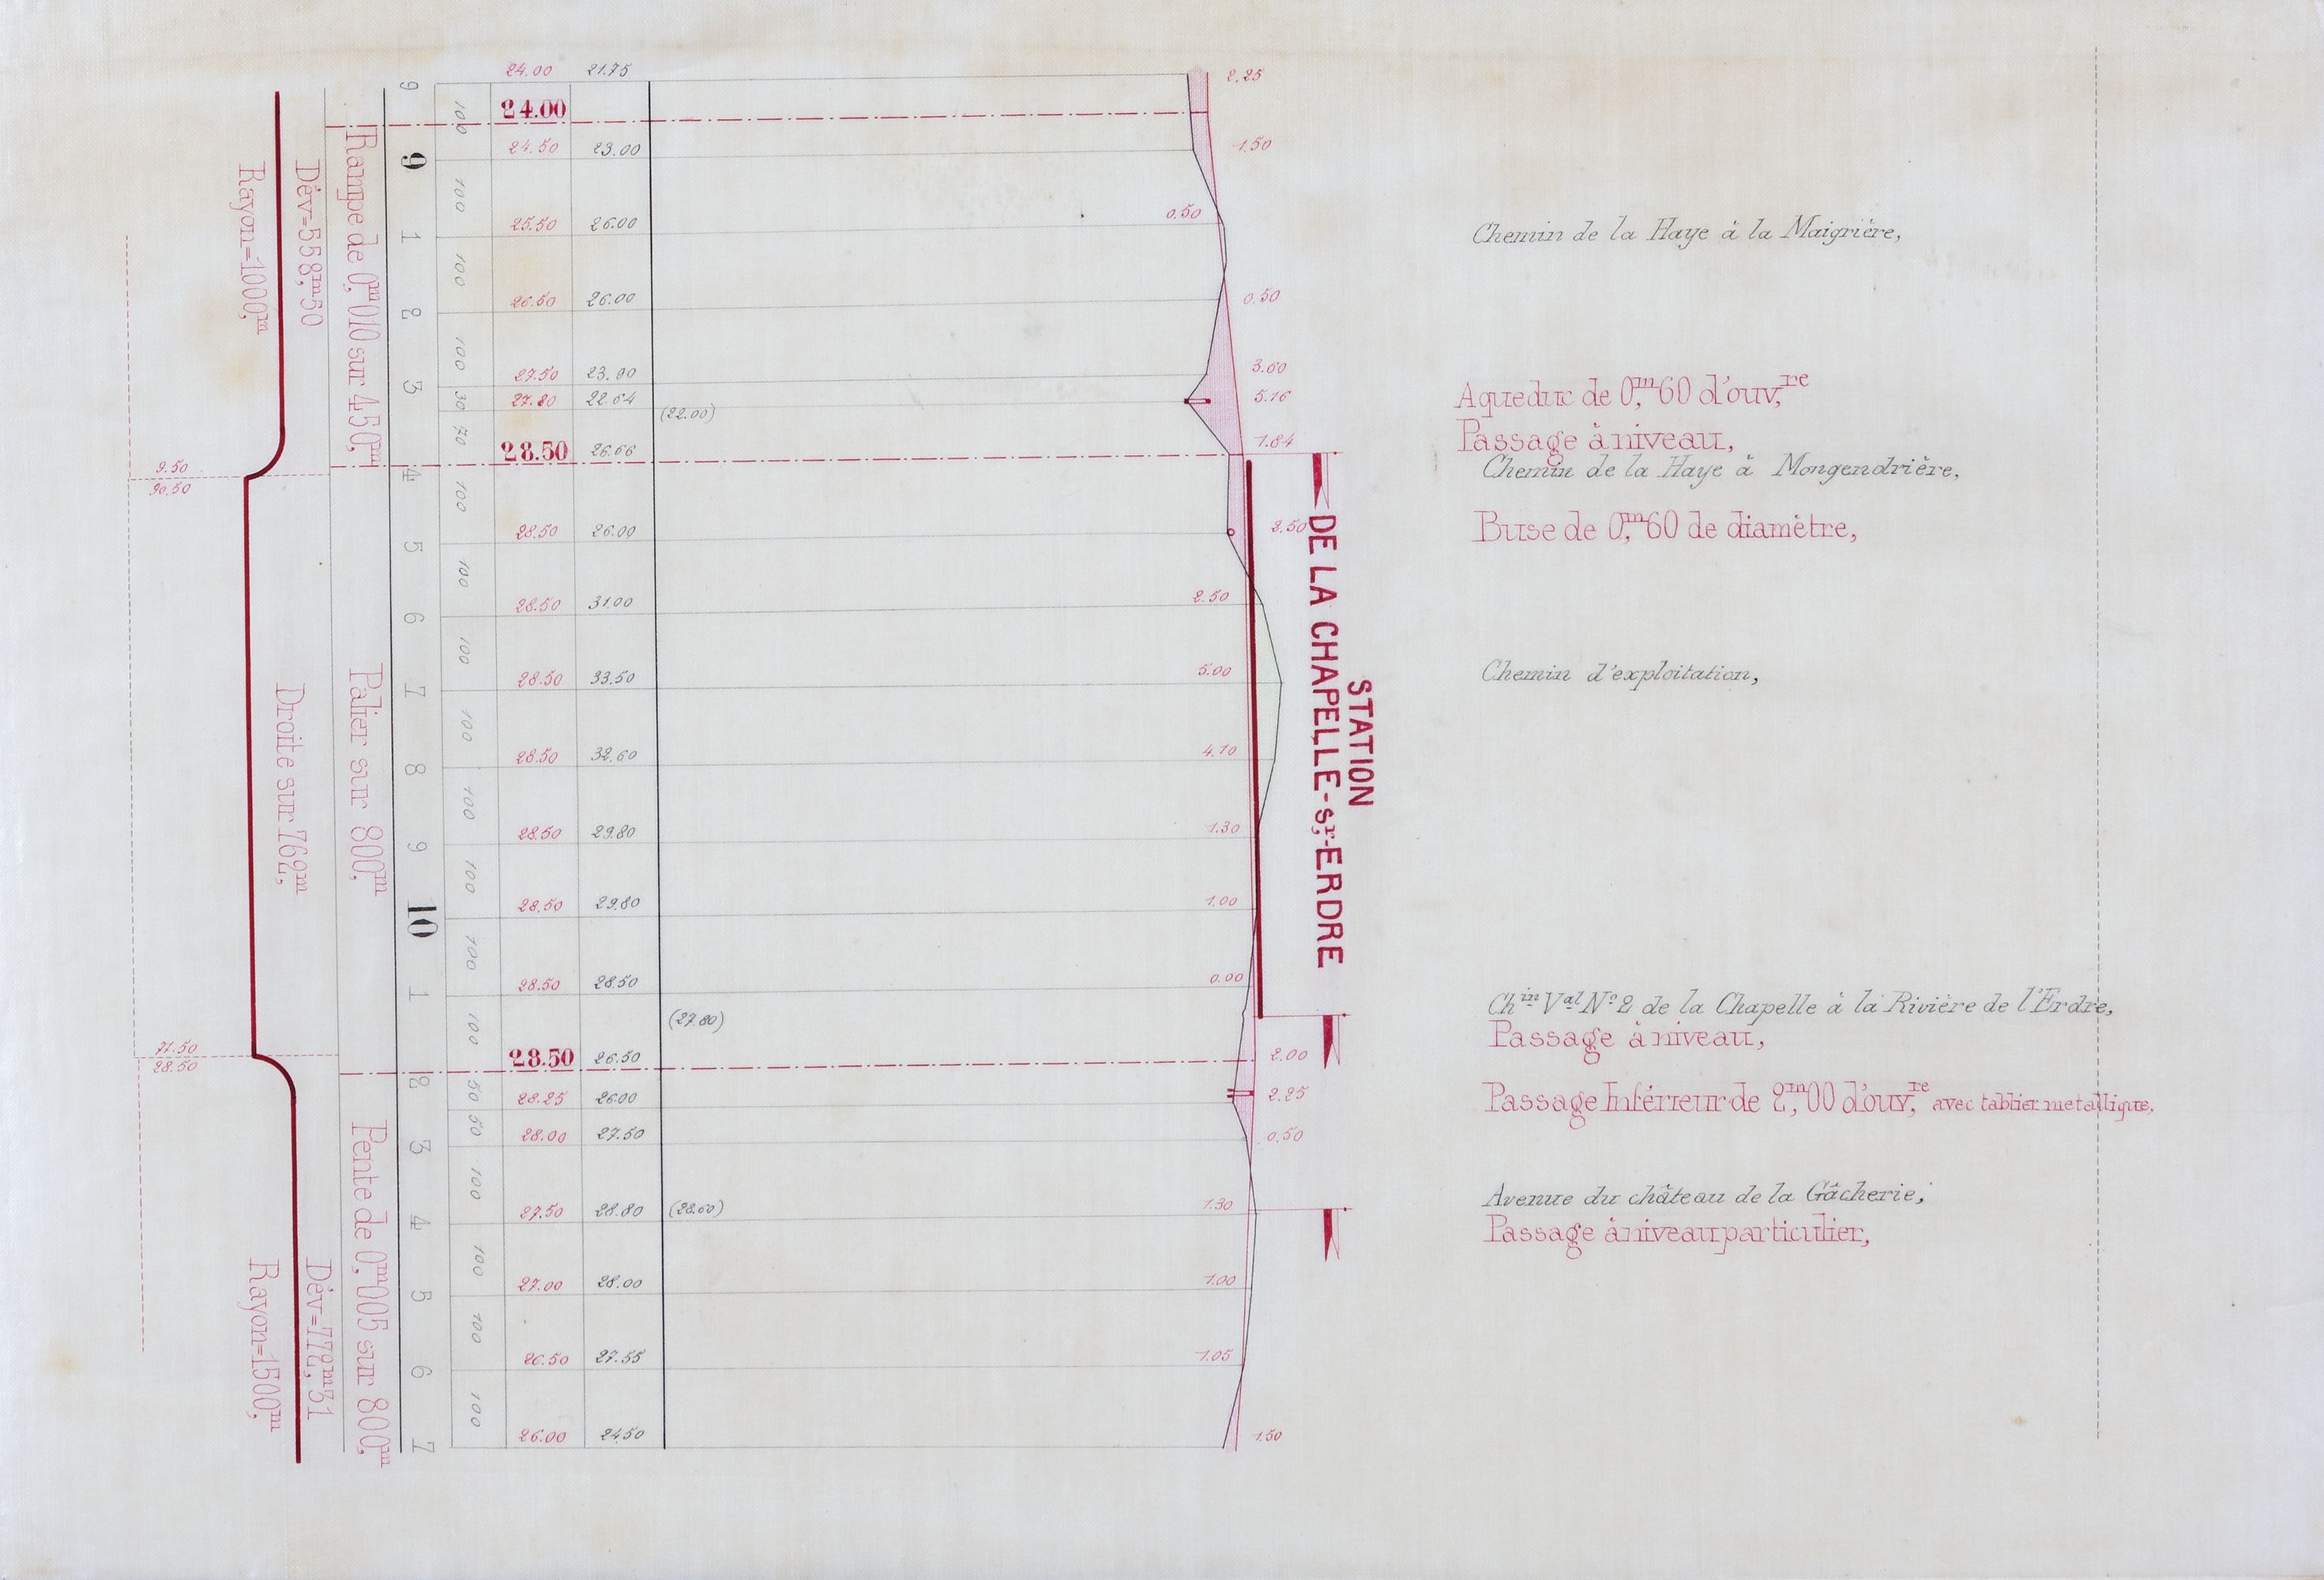 24.00 21.75 2.25
9
100
24.00
9
24.50 23.00 1.50
100
0.50
1
25.50 26.00
Chemin de la Haye à la Maigrière,
100
2
26.50 26.00 0.50
100
3
27.50 23.90 3.60
30
27.80 22.64 5.16
(22.00)
Aqueduc de 0,m60 d'ouv,re
70
28.50 26.66 1.84
Passage à niveau,
4
Chemin de la Haye à Mongendrière,
9.50
90.50
100
5
28.50 26.00 2.50
Buse de 0,m60 de diamètre,
100
6
28.50 31.00 2.50
100
7
28.50 33.50 5.00
Chemin d'exploitation,
100
8
28.50 32.60 4.10
100
9
28.50 29.80 1.30
100
10
28.50 29.80 1.00
100
1
28.50 28.50 0.00
100
(27.80)
Chin Val No 2 de la Chapelle à la Rivière de l'Erdre,
Passage à niveau,
71.50
28.50
28.50 26.50 2.00
2
50
28.25 26.00 2.25
Passage Inférieur de 2,m00 d'ouv,re avec tablier metallique,
50
3
28.00 27.50 0.50
100
4
27.50 28.80 (28.60) 1.30
Avenue du château de la Gâcherie,
Passage à niveau particulier,
100
5
27.00 28.00 1.00
100
6
26.50 27.55 1.05
100
7
26.00 24.50 1.50
Rayon=1000,m
Dév=558,m50
Rampe de 0,m010 sur 450,m
Droite sur 762,m
Palier sur 800,m
Rayon=1500,m
Dév=772,m31
Pente de 0,m005 sur 800,m
STATION
DE LA CHAPELLE-s,r-ERDRE